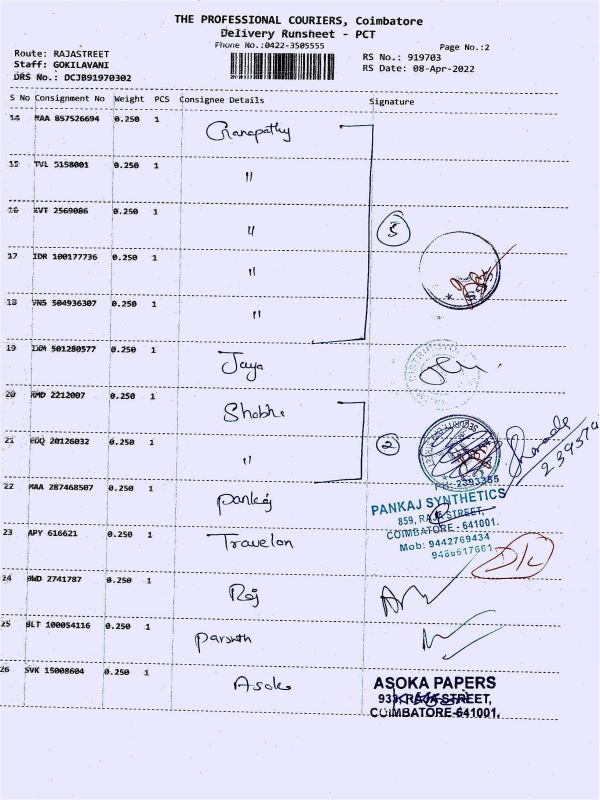 THE PROFESSIONAL COURIERS, Coimbatore
Delivery Runsheet - PCT
Phone No.:0422-3505555
Page No.:2
Route: RAJASTREET
Staff: GOKILAVANI
DRS No.: DCJB91970302
RS No.: 919703
RS Date: 08-Apr-2022
S No Consignment No Weight PCS Consignee Details Signature
14 MAA 857526694 0.250 1 Ganapathy
15 TVL 5158001 0.250 1 "
16 KVT 2569086 0.250 1 "
5
17 IDR 100177736 0.250 1 "
18 VNS 504936307 0.250 1 "
19 IXM 501280577 0.250 1 Jaya
20 RMD 2212007 0.250 1 Shobhi
21 0.250 1 "
2
22 MAA 287468507 0.250 1 Pankaj
PH: 2393355
PANKAJ SYNTHETICS
859, RAJA STREET,
COIMBATORE - 641001.
Mob: 9442769434
23 APY 616621 0.250 1 Travelon
D/C
24 BWD 2741787 0.250 1 Raj
25 BLT 100054116 0.250 1
26 SVK 15008604 0.250 1 Asoka
ASOKA PAPERS
933, RAJA STREET,
COIMBATORE-641001.